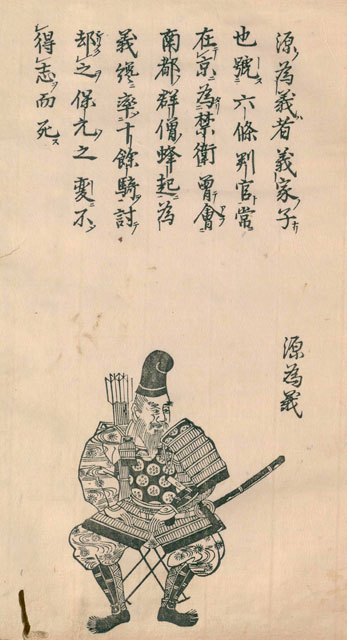 源為義者義家子
也號六條判官常
在京為禁衛曾會
南都群僧蜂起為
義纔率十餘騎討
却之保元之変不
得志而死
源為義